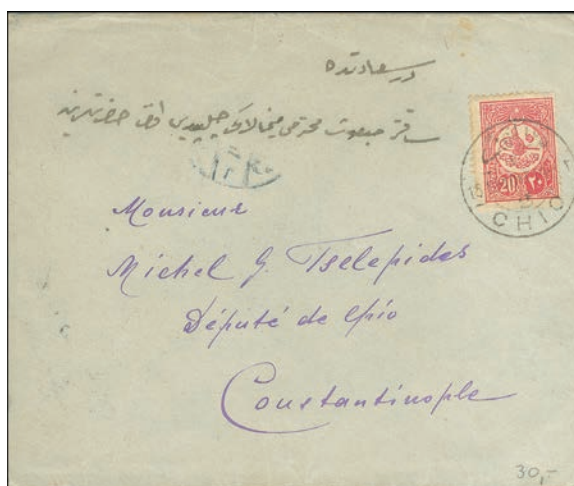 در سعادتده
ساقز مبعوث محترمى ميخالاكى چلبيدى افندى حضرتلرينه
Monsieur
Michel G. Tselepides
Député de Chio
Constantinople
20 ٢٠
CHIO
30,-